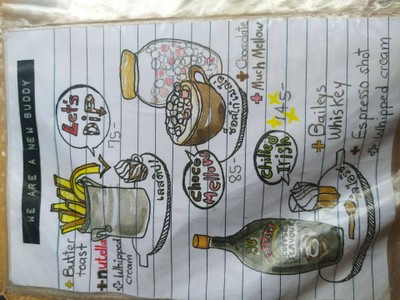 WE ARE A NEW BUDDY
Let's
Dip
75.-
เลสดิป
+ Butter
toast
+ nutella
☆ Whipped
cream
Choco
Mellow
85.-
ช็อคโกเมลโล
+ Chocolate
+ Mush Mellow
Irish
145.-
+ Baileys
Whiskey
+ Espresso shot
☆ Whipped cream